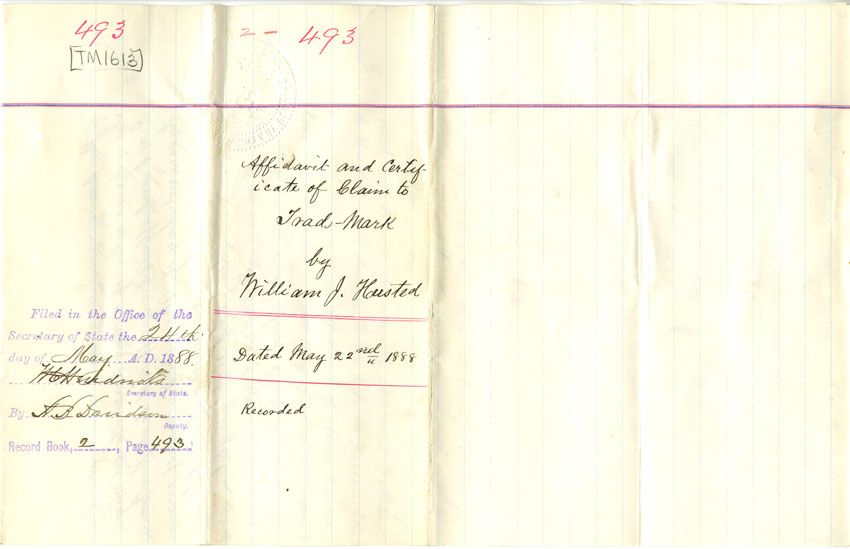 493
[TM1613]
Filed in the Office of the
Secretary of State the 24th
day of May A. D. 1888.
W C Hendricks
Secretary of State.
By A. B. Davidson
Deputy.
Record Book, 2, Page 493
2 - 493
Affidavit and Certif-
icate of Claim to
Trad-Mark
by
William J. Husted
Dated May 22nd 1888
Recorded